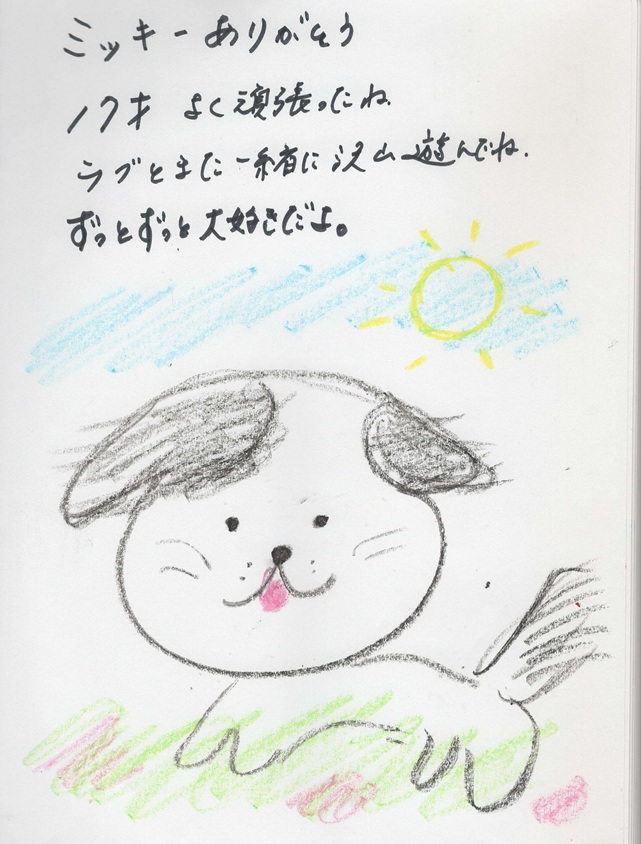 ミッキーありがとう
ノクオ よく頑張ったね
ラブとまた一緒に沢山遊んでね.
ずっとずっと大好きだよ。